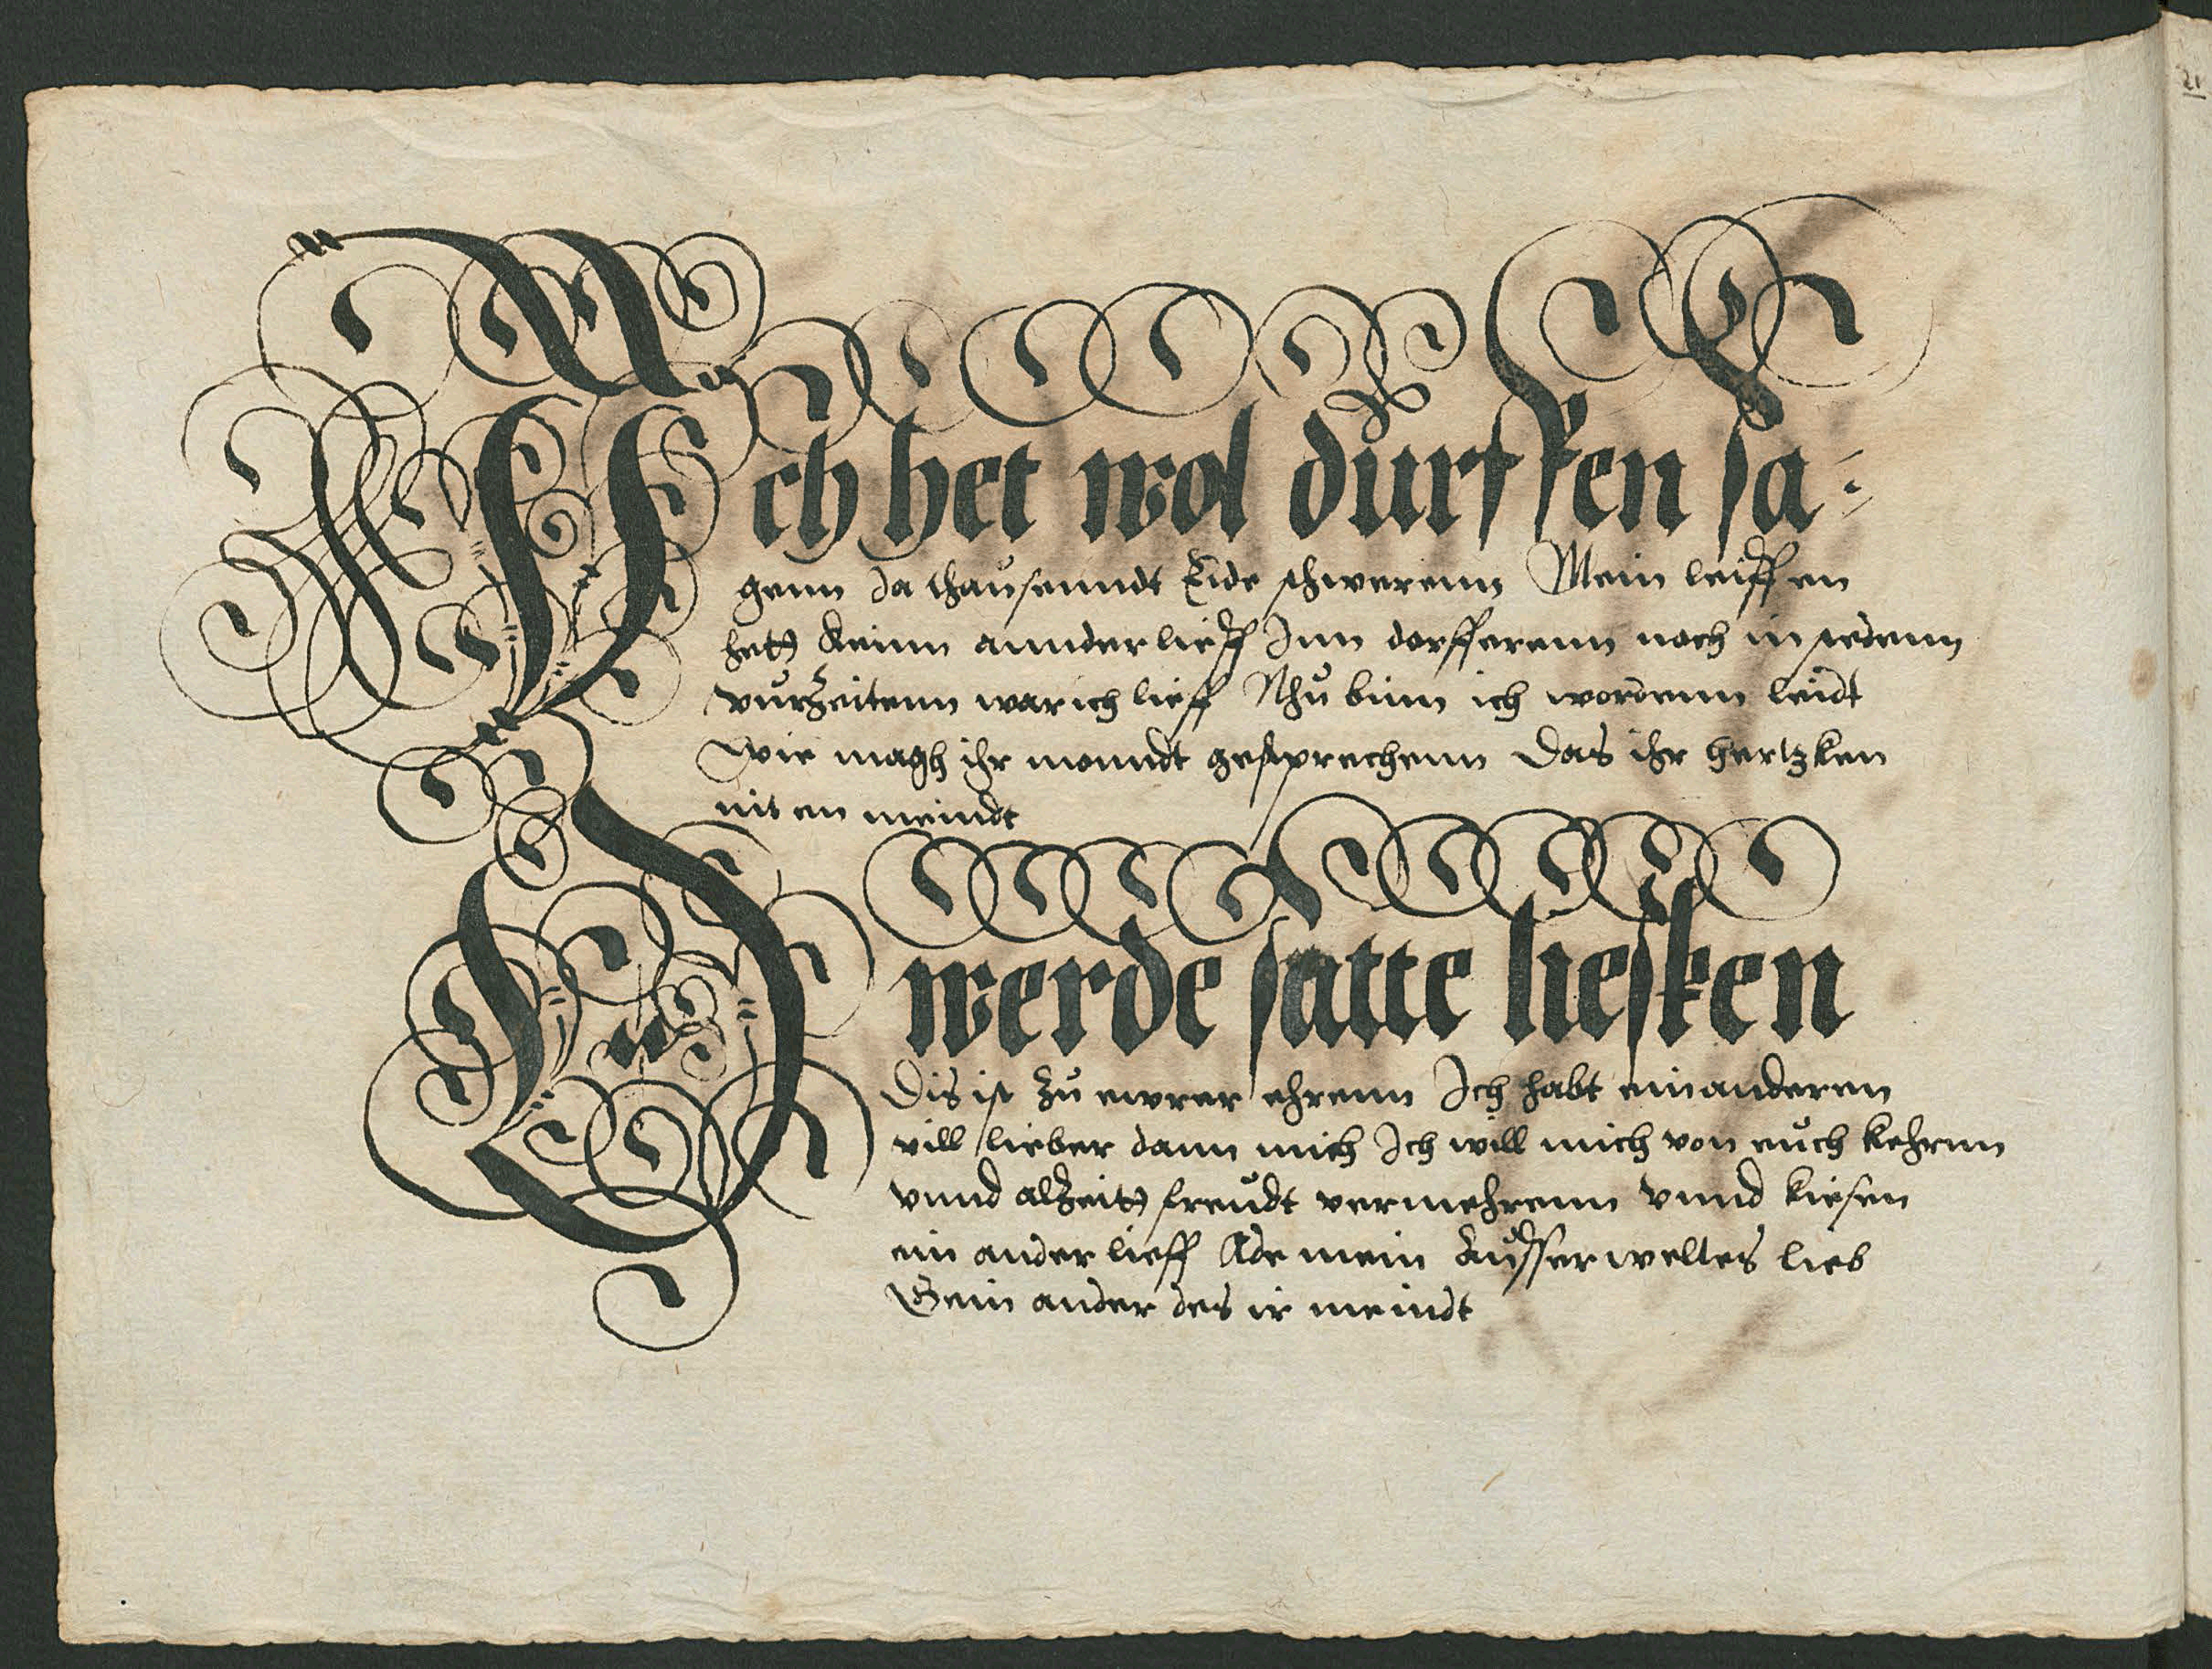 Ich het wol dürffen sa=
genn Ja thausenndt Eide schwerenn Mein leiffen
het Keinn annder lieff Inn dorfferenn noch in stedenn
vurzeitenn war ich lieff Nhu binn ich wordenn leidt
Wie magh ihr monndt gesprechenn Das ihr hertzken
nit en meindt
O werde satte liefken
Dis ist zu ewrer ehrenn Ich habt ein anderen
vill lieber dann mich Ich will mich von euch kehrnn
vnnd alzeit freudt vermehrenn vnnd kiesen
ein ander lieff Ade mein Ausserweltes lieb
ein ander des ir meindt
21